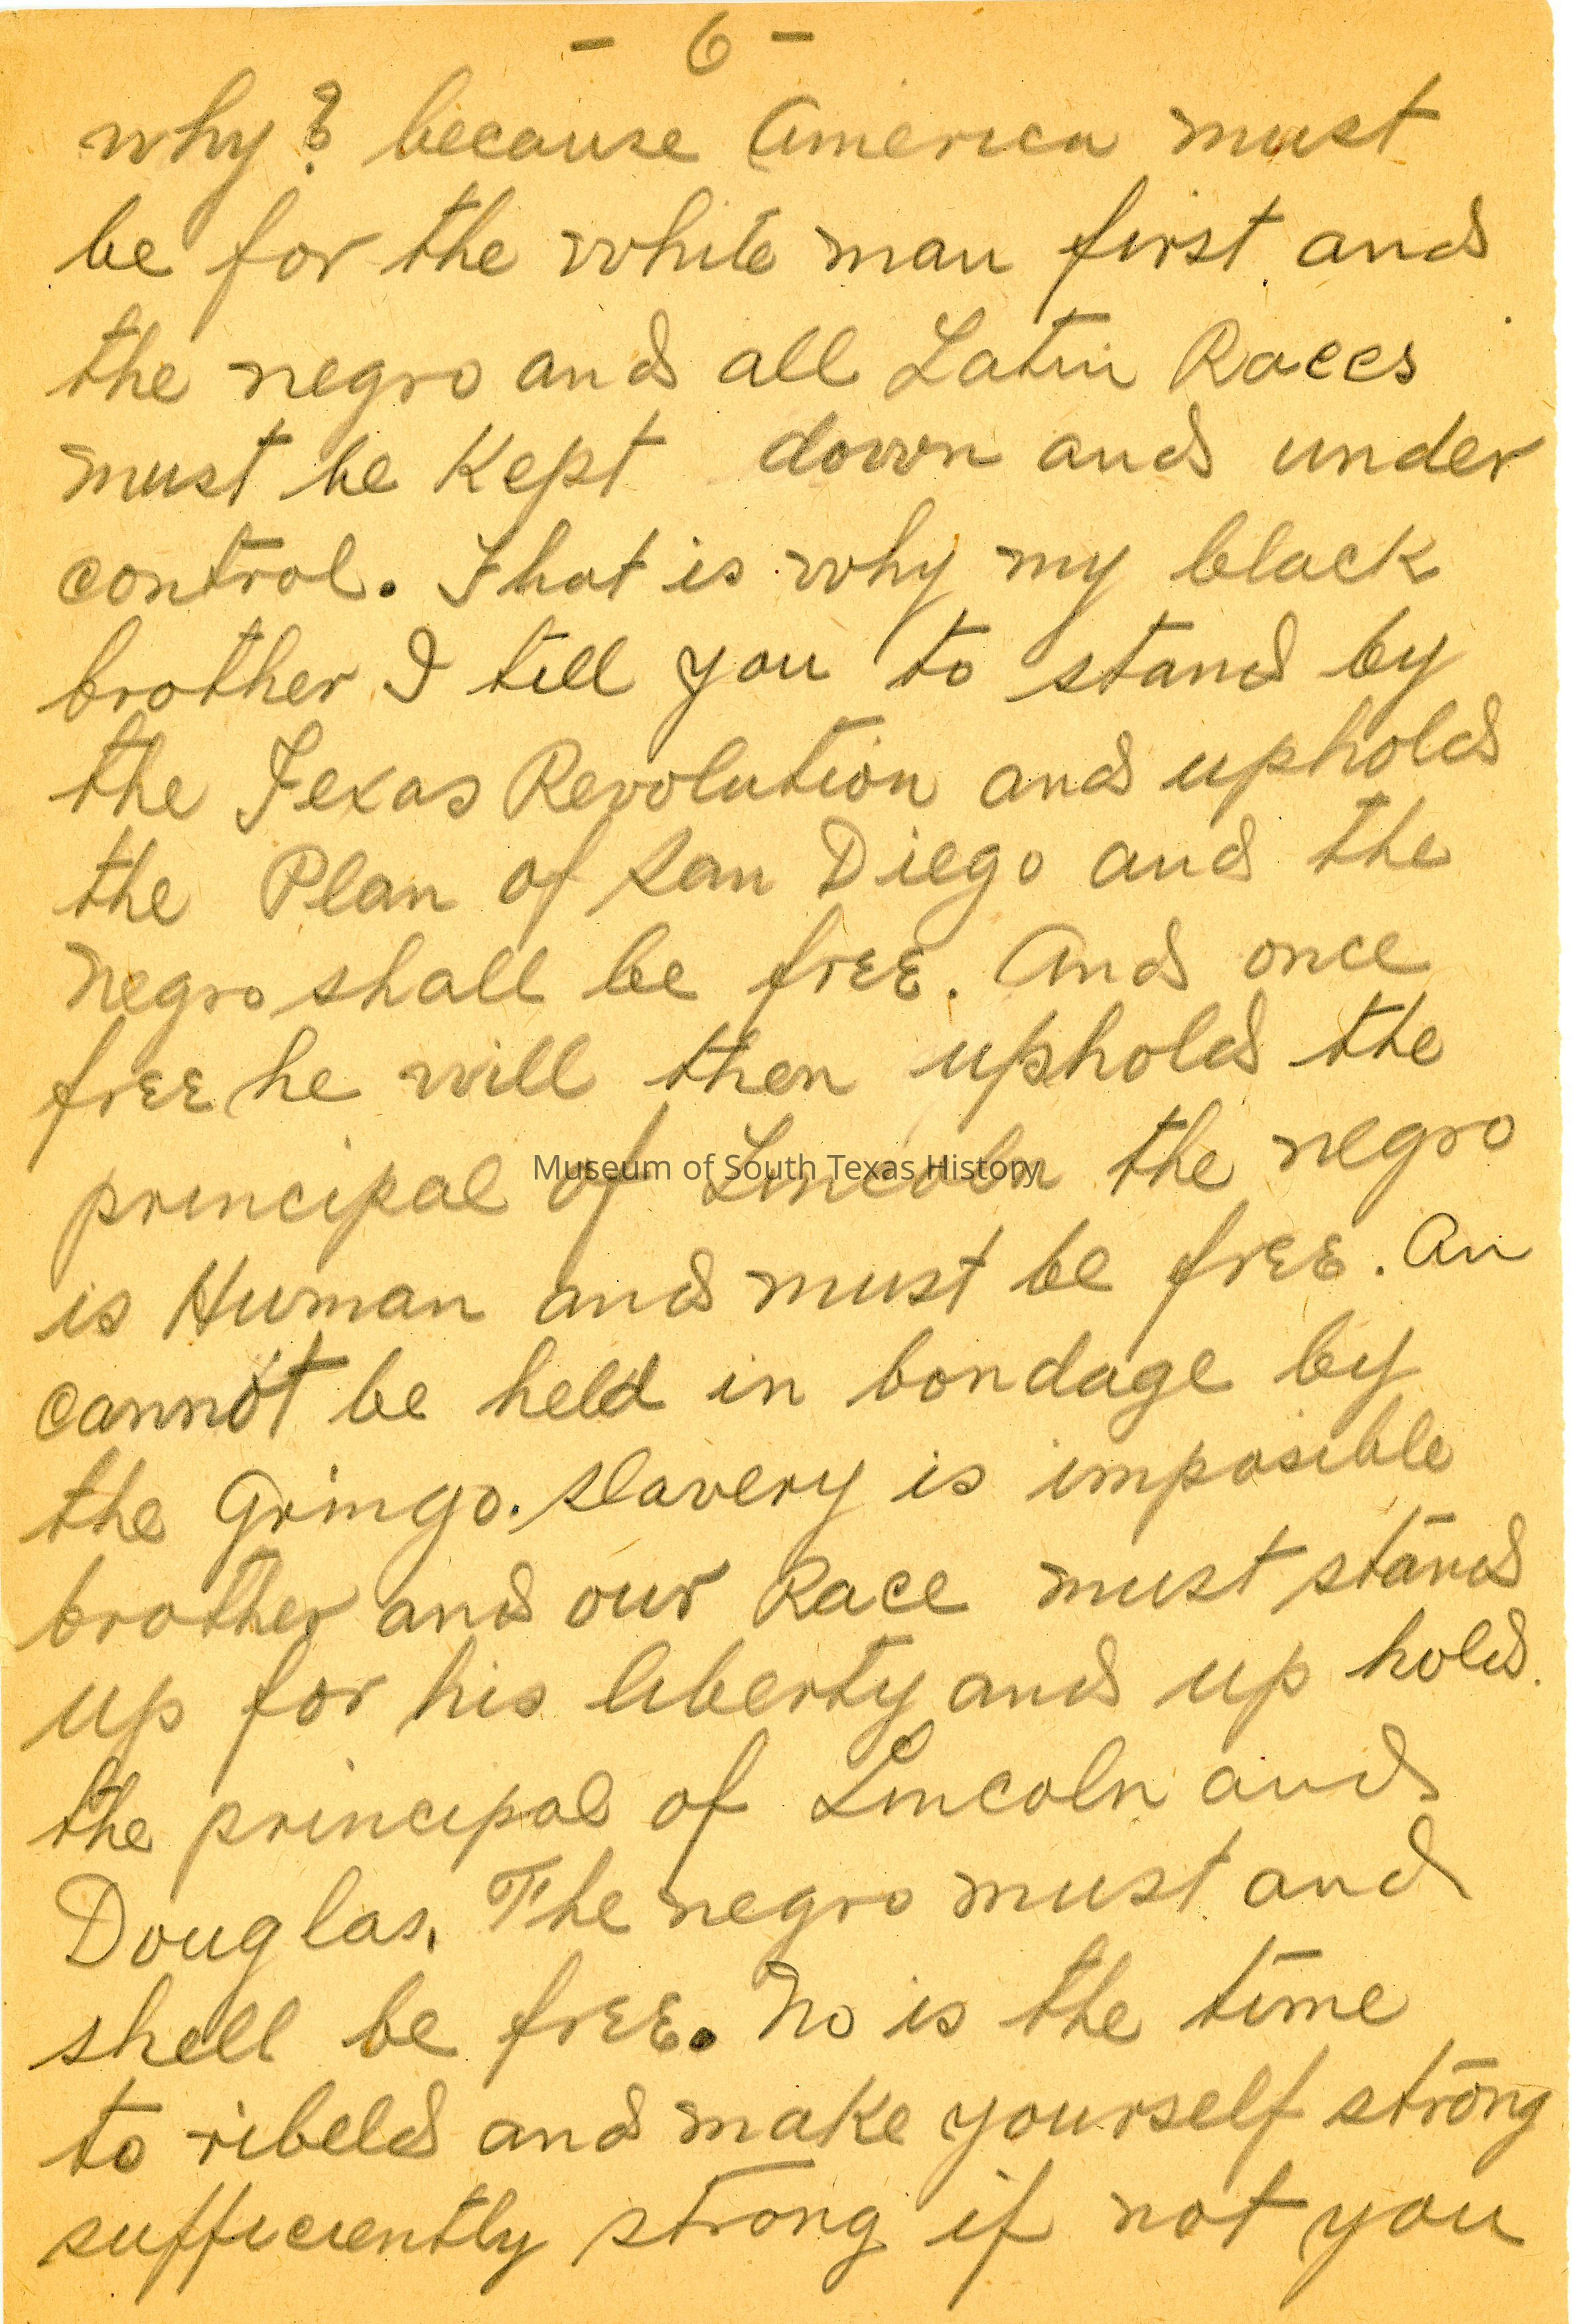 - 6 -
why? because America must
be for the white man first and
the negro and all Latin Races
must be Kept down and under
control. That is why my black
brother I till you to stand by
the Texas Revolution and uphold
the Plan of San Diego and the
negro shall be free. And once
free he will then uphold the
principal of Lincoln the negro
Museum of South Texas History
is Human and must be free. An
cannot be held in bondage by
the Gringo. Slavery is imposible
brother and our Race must stand
up for his liberty and up hold.
the principal of Lincoln and
Douglas. The negro must and
shell be free. No is the time
to ribeld and make yourself strong
sufficiently strong if not you